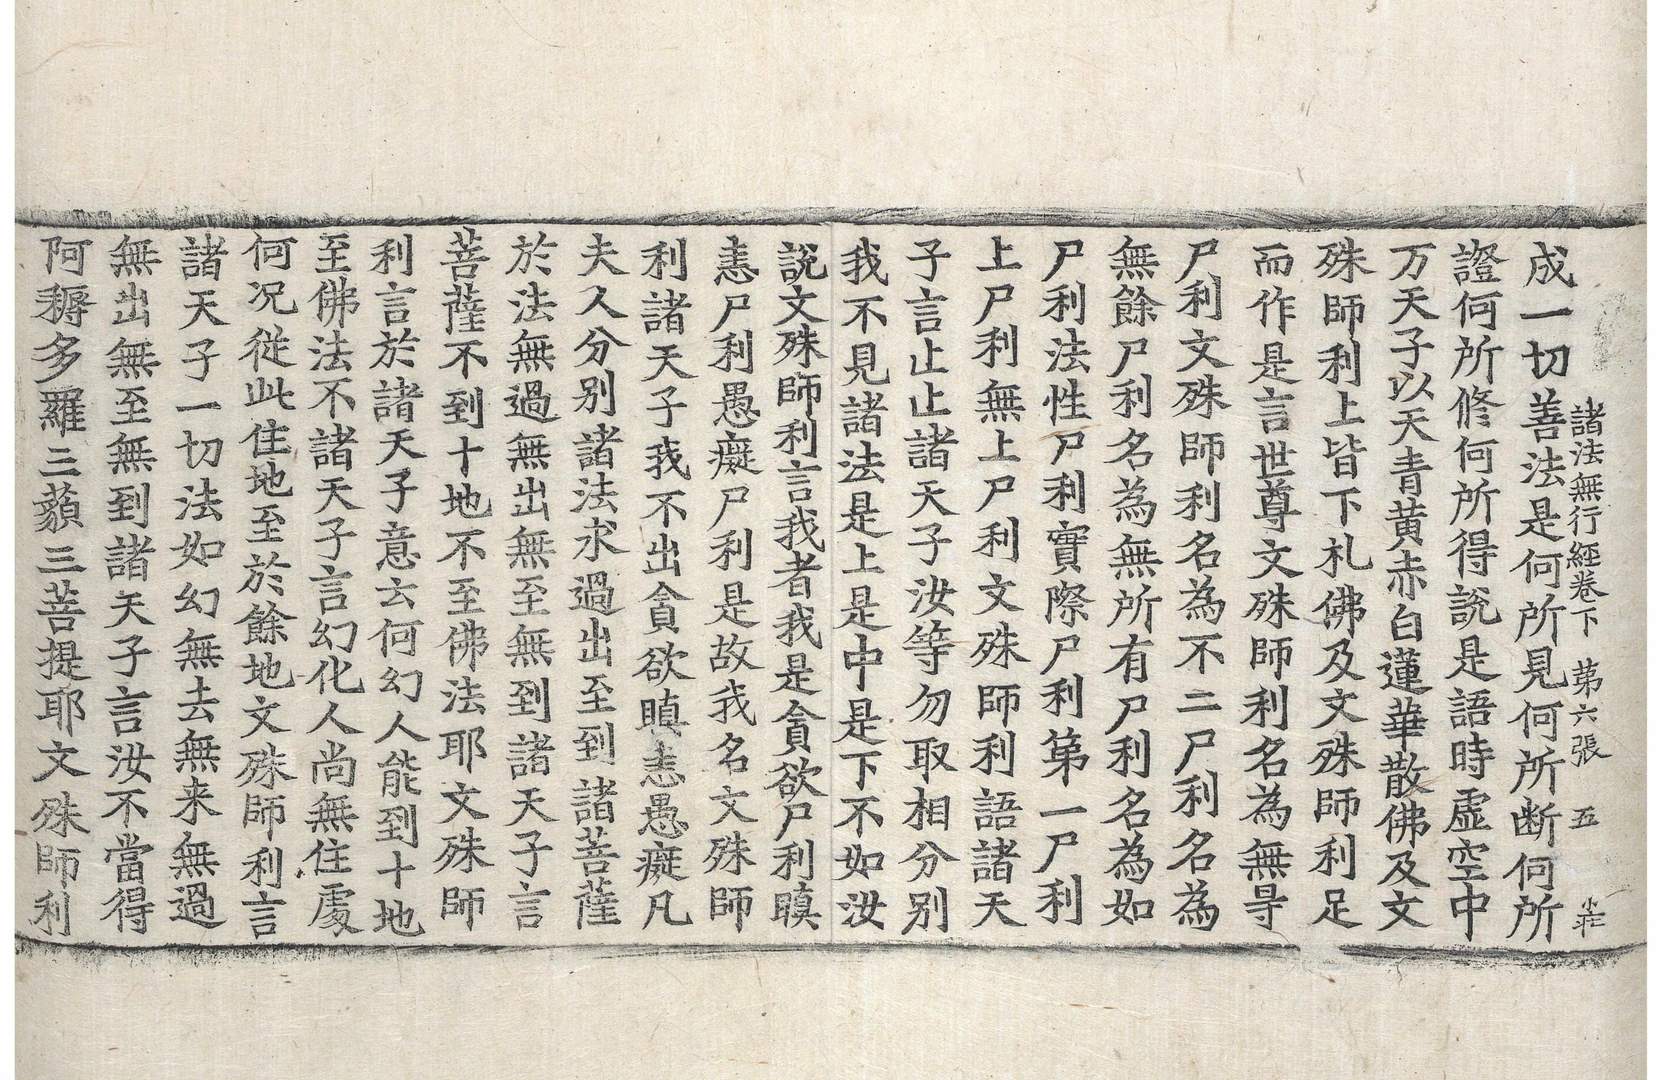 諸法無行經卷下　苐六張　五　小庄
成一切善法是何所見何所断何所
證何所修何所得說是語時虛空中
万天子以天青黄赤白蓮華散佛及文
殊師利上皆下札佛及文殊師利足
而作是言世尊文殊師利名為無㝵
尸利文殊師利名為不二尸利名為
無餘尸利名為無所有尸利名為如
尸利法性尸利實際尸利第一尸利
上尸利無上尸利文殊師利語諸天
子言止止諸天子汝等勿取相分別
我不見諸法是上是中是下不如汝
說文殊師利言我者我是貪欲尸利瞋
恚尸利愚癡尸利是故我名文殊師
利諸天子我不出貪欲瞋恚愚癡凡
夫人分別諸法求過出至到諸菩薩
於法無過無出無至無到諸天子言
菩薩不到十地不至佛法耶文殊師
利言於諸天子意云何幻人能到十地
至佛法不諸天子言幻化人尚無住處
何况從此住地至於餘地文殊師利言
諸天子一切法如幻無去無来無過
無出無至無到諸天子言汝不當得
阿耨多羅三藐三菩提耶文殊師利